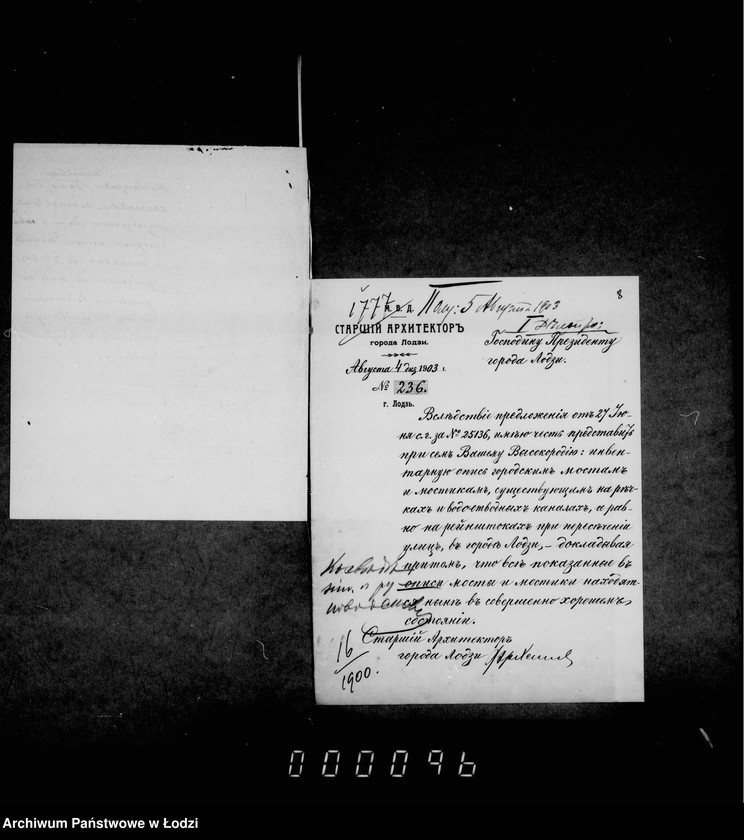 1777
М.В.Д. Пол: 5 Августа 1903
8
СТАРШІЙ АРХИТЕКТОРЪ
города Лодзи.
Августа 4 дня 1903 г.
№ 236.
г. Лодзь.
Господину Президенту
города Лодзи.
Вслѣдствіе предложенія отъ 27 Ію-
ня с.г. за № 25136, имѣю честь представить
при семъ Вашему Высокородію: инвен-
тарную опись городскимъ мостамъ
и мостикамъ, существующимъ на рѣч-
кахъ и водоотводныхъ каналахъ, а рав-
но на рейнштокахъ при пересѣченіи
улицъ, въ городѣ Лодзи, – докладывая
притомъ, что всѣ показанные въ
описи мосты и мостики находят-
ся нынѣ въ совершенно хорошемъ
состояніи.
Старшій Архитекторъ
города Лодзи
16
1900.
000096
Archiwum Państwowe w Łodzi